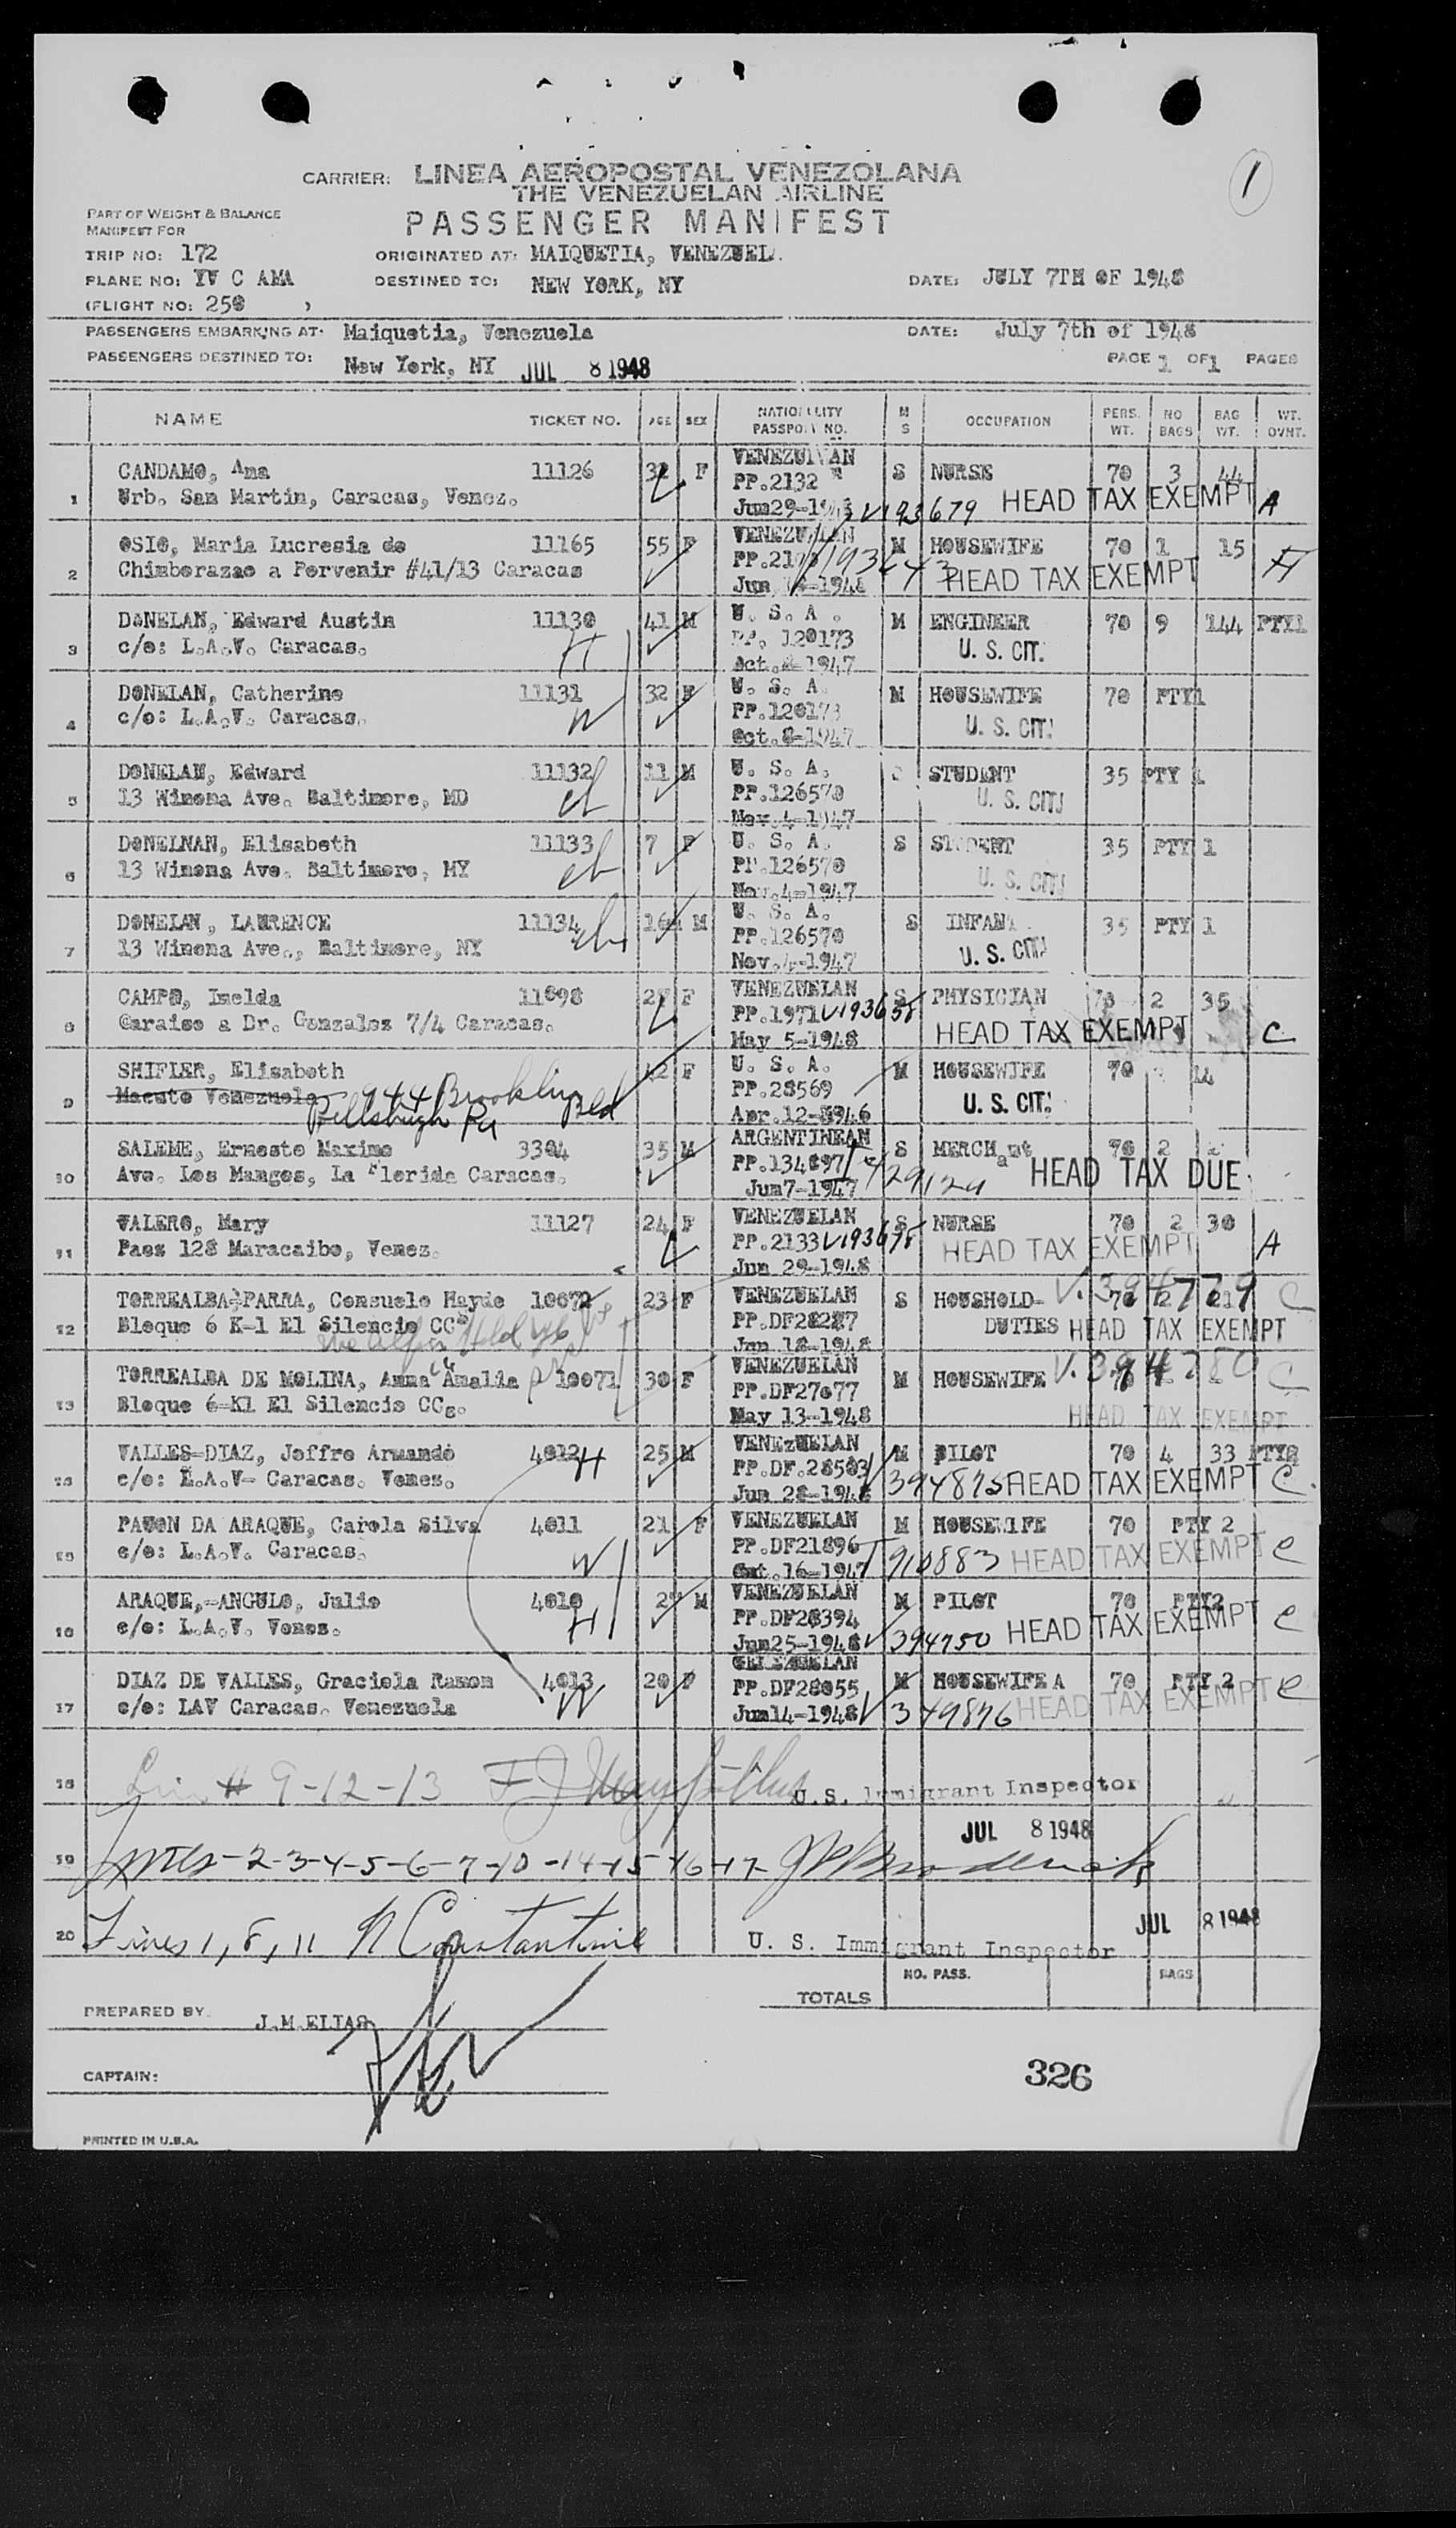 1
CARRIER: LINEA AEROPOSTAL VENEZOLANA
THE VENEZUELAN AIRLINE
PASSENGER MANIFEST
PART OF WEIGHT & BALANCE
MANIFEST FOR
TRIP NO: 172 ORIGINATED AT: MAIQUETIA, VENEZUELA.
PLANE NO: YV C AMA DESTINED TO: NEW YORK, NY DATE: JULY 7TH OF 1948
(FLIGHT NO: 250 )
PASSENGERS EMBARKING AT: Maiquetia, Venezuela DATE: July 7th of 1948
PASSENGERS DESTINED TO: New York, NY JUL 8 1948 PAGE 1 OF 1 PAGES
NAME TICKET NO. AGE SEX NATIONALITY PASSPORT NO. M S OCCUPATION PERS. WT. NO BAGS BAG WT. WT. OVNT.
CANDAMO, Ana 11126 32 F VENEZUELAN S NURSE 70 3 44
PP.2132
1 Urb. San Martin, Caracas, Venez. Jun29-1948 V193679 HEAD TAX EXEMPT A
OSIO, Maria Lucresia de 11165 55 F VENEZUELAN M HOUSEWIFE 70 1 15
2 Chimborazao a Porvenir #41/13 Caracas HEAD TAX EXEMPT
DONELAN, Edward Austin 11130 41 M U. S. A. M ENGINEER 70 9 144 PTY1
3 c/o: L.A.V. Caracas. H PP. 120173 U. S. CIT.
Oct.8-1947
DONELAN, Catherine 11131 32 F U. S. A. M HOUSEWIFE 70 PTY1
4 c/o: L.A.V. Caracas. W PP.120173 U. S. CIT.
Oct.8-1947
DONELAN, Edward 11132 11 M U. S. A. S STUDENT 35 PTY 1
5 13 Winona Ave. Baltimore, MD ch PP.126570 U. S. CIT.
Nov.4-1947
DONELNAN, Elisabeth 11133 7 F U. S. A. S STUDENT 35 PTY 1
6 13 Winona Ave. Baltimore, MY ch PP.126570 U. S. CIT.
Nov.4-1947
DONELAN, LAURENCE 11134 ch M U. S. A. S INFANT 35 PTY 1
7 13 Winona Ave., Baltimore, NY PP.126570 U. S. CIT.
Nov.4-1947
CAMPO, Imelda 11098 F VENEZUELAN S PHYSICIAN 2 35
8 Caraiso a Dr. Gonzalez 7/4 Caracas. PP.1971 V193658 HEAD TAX EXEMPT C
May 5-1948
SHIFLER, Elisabeth F U. S. A. M HOUSEWIFE 70
9 Macuto Venezuela 944 Brookline Bld PP.28569 U. S. CIT.
Pittsburgh Pa Apr.12-1946
SALEME, Ernesto Maximo 3304 35 M ARGENTINEAN S MERCHant 70 2
10 Ave. Los Mangos, La Florida Caracas. PP.134897 HEAD TAX DUE
Jun7-1947
VALERO, Mary 11127 24 F VENEZUELAN S NURSE 70 2 30
11 Paez 128 Maracaibo, Venez. PP.2133 V193678 HEAD TAX EXEMPT A
Jun 29-1948
TORREALBA-PARRA, Consuelo Hayde 10072 23 F VENEZUELAN S HOUSHOLD- V.394779 C
12 Bloque 6 K-1 El Silencio CCs PP.DF28287 DUTIES HEAD TAX EXEMPT
Jun 18-1948
TORREALBA DE MOLINA, Anna Amalia 10071 30 F VENEZUELAN M HOUSEWIFE V.394780 C
13 Bloque 6-K1 El Silencio CCs. PP.DF27077 HEAD TAX EXEMPT
May 13-1948
VALLES-DIAZ, Joffre Armando 4012 H 25 M VENEzUELAN M PILOT 70 4 33 PTY2
14 c/o: L.A.V- Caracas. Venez. PP.DF.28503 V394875 HEAD TAX EXEMPT C
Jun 28-1948
PAVON DA ARAQUE, Carola Silva 4011 21 F VENEZUELAN M HOUSEWIFE 70 PTY 2
15 c/o: L.A.V. Caracas. W PP.DF21896 T910883 HEAD TAX EXEMPT C
Oct.16-1947
ARAQUE,-ANGULO, Julio 4010 H M VENEZUELAN M PILOT 70 PTY2
16 c/o: L.A.V. Venez. PP.DF28394 HEAD TAX EXEMPT C
Jun25-1948 V394750
DIAZ DE VALLES, Graciela Ramon 4013 W 20 F M HOUSEWIFE A 70 PTY 2
17 c/o: LAV Caracas. Venezuela PP.DF28055 HEAD TAX EXEMPT C
Jun14-1948 V349876
18 # 9-12-13 U.S. Immigrant Inspector
JUL 8 1948
19 Lines-2-3-4-5-6-7-10-14-15-16-17-
JUL 8 1948
20 Lines 1, 8, 11 N Constantine U. S. Immigrant Inspector
NO. PASS. BAGS
TOTALS
PREPARED BY: J.M.ELIAS
CAPTAIN:
326
PRINTED IN U.S.A.